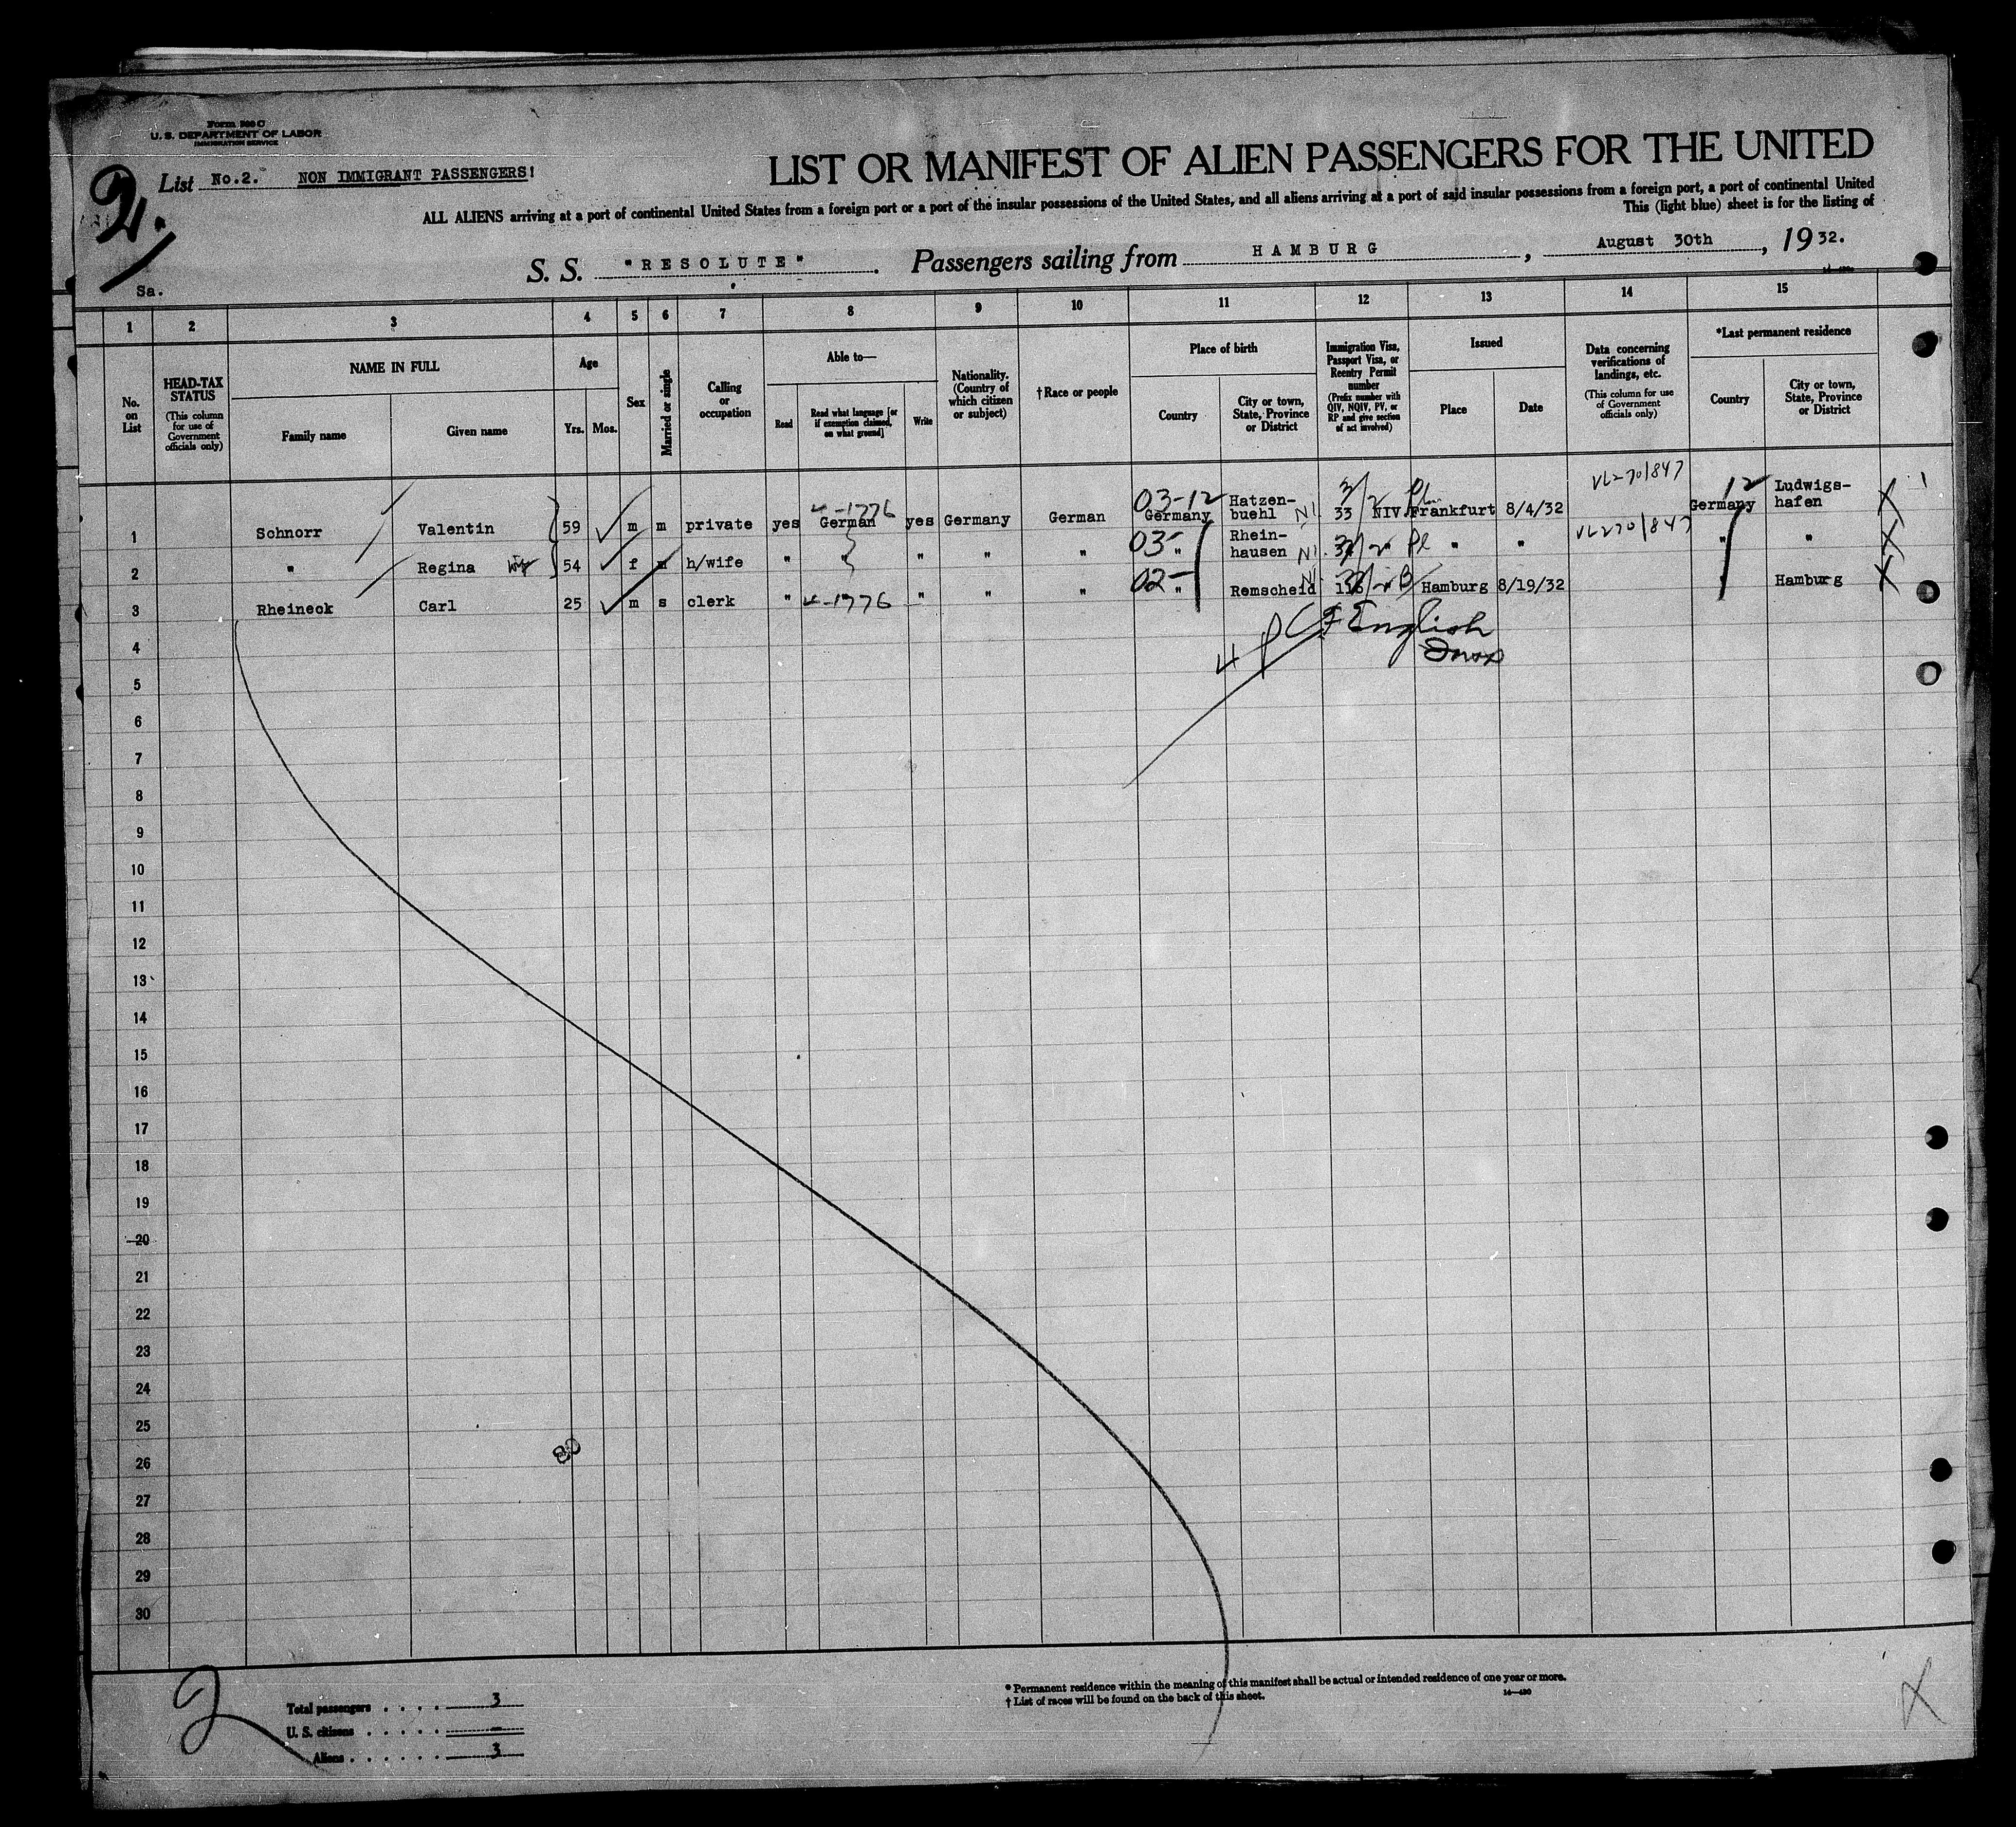 Form 500 C
U. S. DEPARTMENT OF LABOR
IMMIGRATION SERVICE
2.
List No.2. NON IMMIGRANT PASSENGERS!
LIST OR MANIFEST OF ALIEN PASSENGERS FOR THE UNITED
ALL ALIENS arriving at a port of continental United States from a foreign port or a port of the insular possessions of the United States, and all aliens arriving at a port of said insular possessions from a foreign port, a port of continental United
This (light blue) sheet is for the listing of
S. S. "RESOLUTE". Passengers sailing from HAMBURG, August 30th, 1932.
Sa.
1 2 3 4 5 6 7 8 9 10 11 12 13 14 15
No. on List
HEAD-TAX STATUS (This column for use of Government officials only)
NAME IN FULL
Family name
Given name
Age
Yrs. Mos.
Sex
Married or single
Calling or occupation
Able to—
Read
Read what language [or if exemption claimed, on what ground]
Write
Nationality. (Country of which citizen or subject)
† Race or people
Place of birth
Country
City or town, State, Province or District
Immigration Visa, Passport Visa, or Reentry Permit number (Prefix number with QIV, NQIV, PV, or RP and give section of act involved)
Issued
Place
Date
Data concerning verifications of landings, etc. (This column for use of Government officials only)
*Last permanent residence
Country
City or town, State, Province or District
1 Schnorr Valentin 59 m m private yes German yes Germany German 03-12 Germany Hatzen-buehl 33 NIV Frankfurt 8/4/32 Germany 12 Ludwigs-hafen
2 " Regina 54 f m h/wife " " " " " 03- " Rhein-hausen " " " "
3 Rheineck Carl 25 m s clerk " 4-1776 " " " 02- " Remscheid Hamburg 8/19/32 " Hamburg
English
4
5
6
7
8
9
10
11
12
13
14
15
16
17
18
19
20
21
22
23
24
25
26
27
28
29
30
80
2
Total passengers . . . . 3
U. S. citizens . . . . . —
Aliens . . . . . . 3
* Permanent residence within the meaning of this manifest shall be actual or intended residence of one year or more.
† List of races will be found on the back of this sheet.
14—430